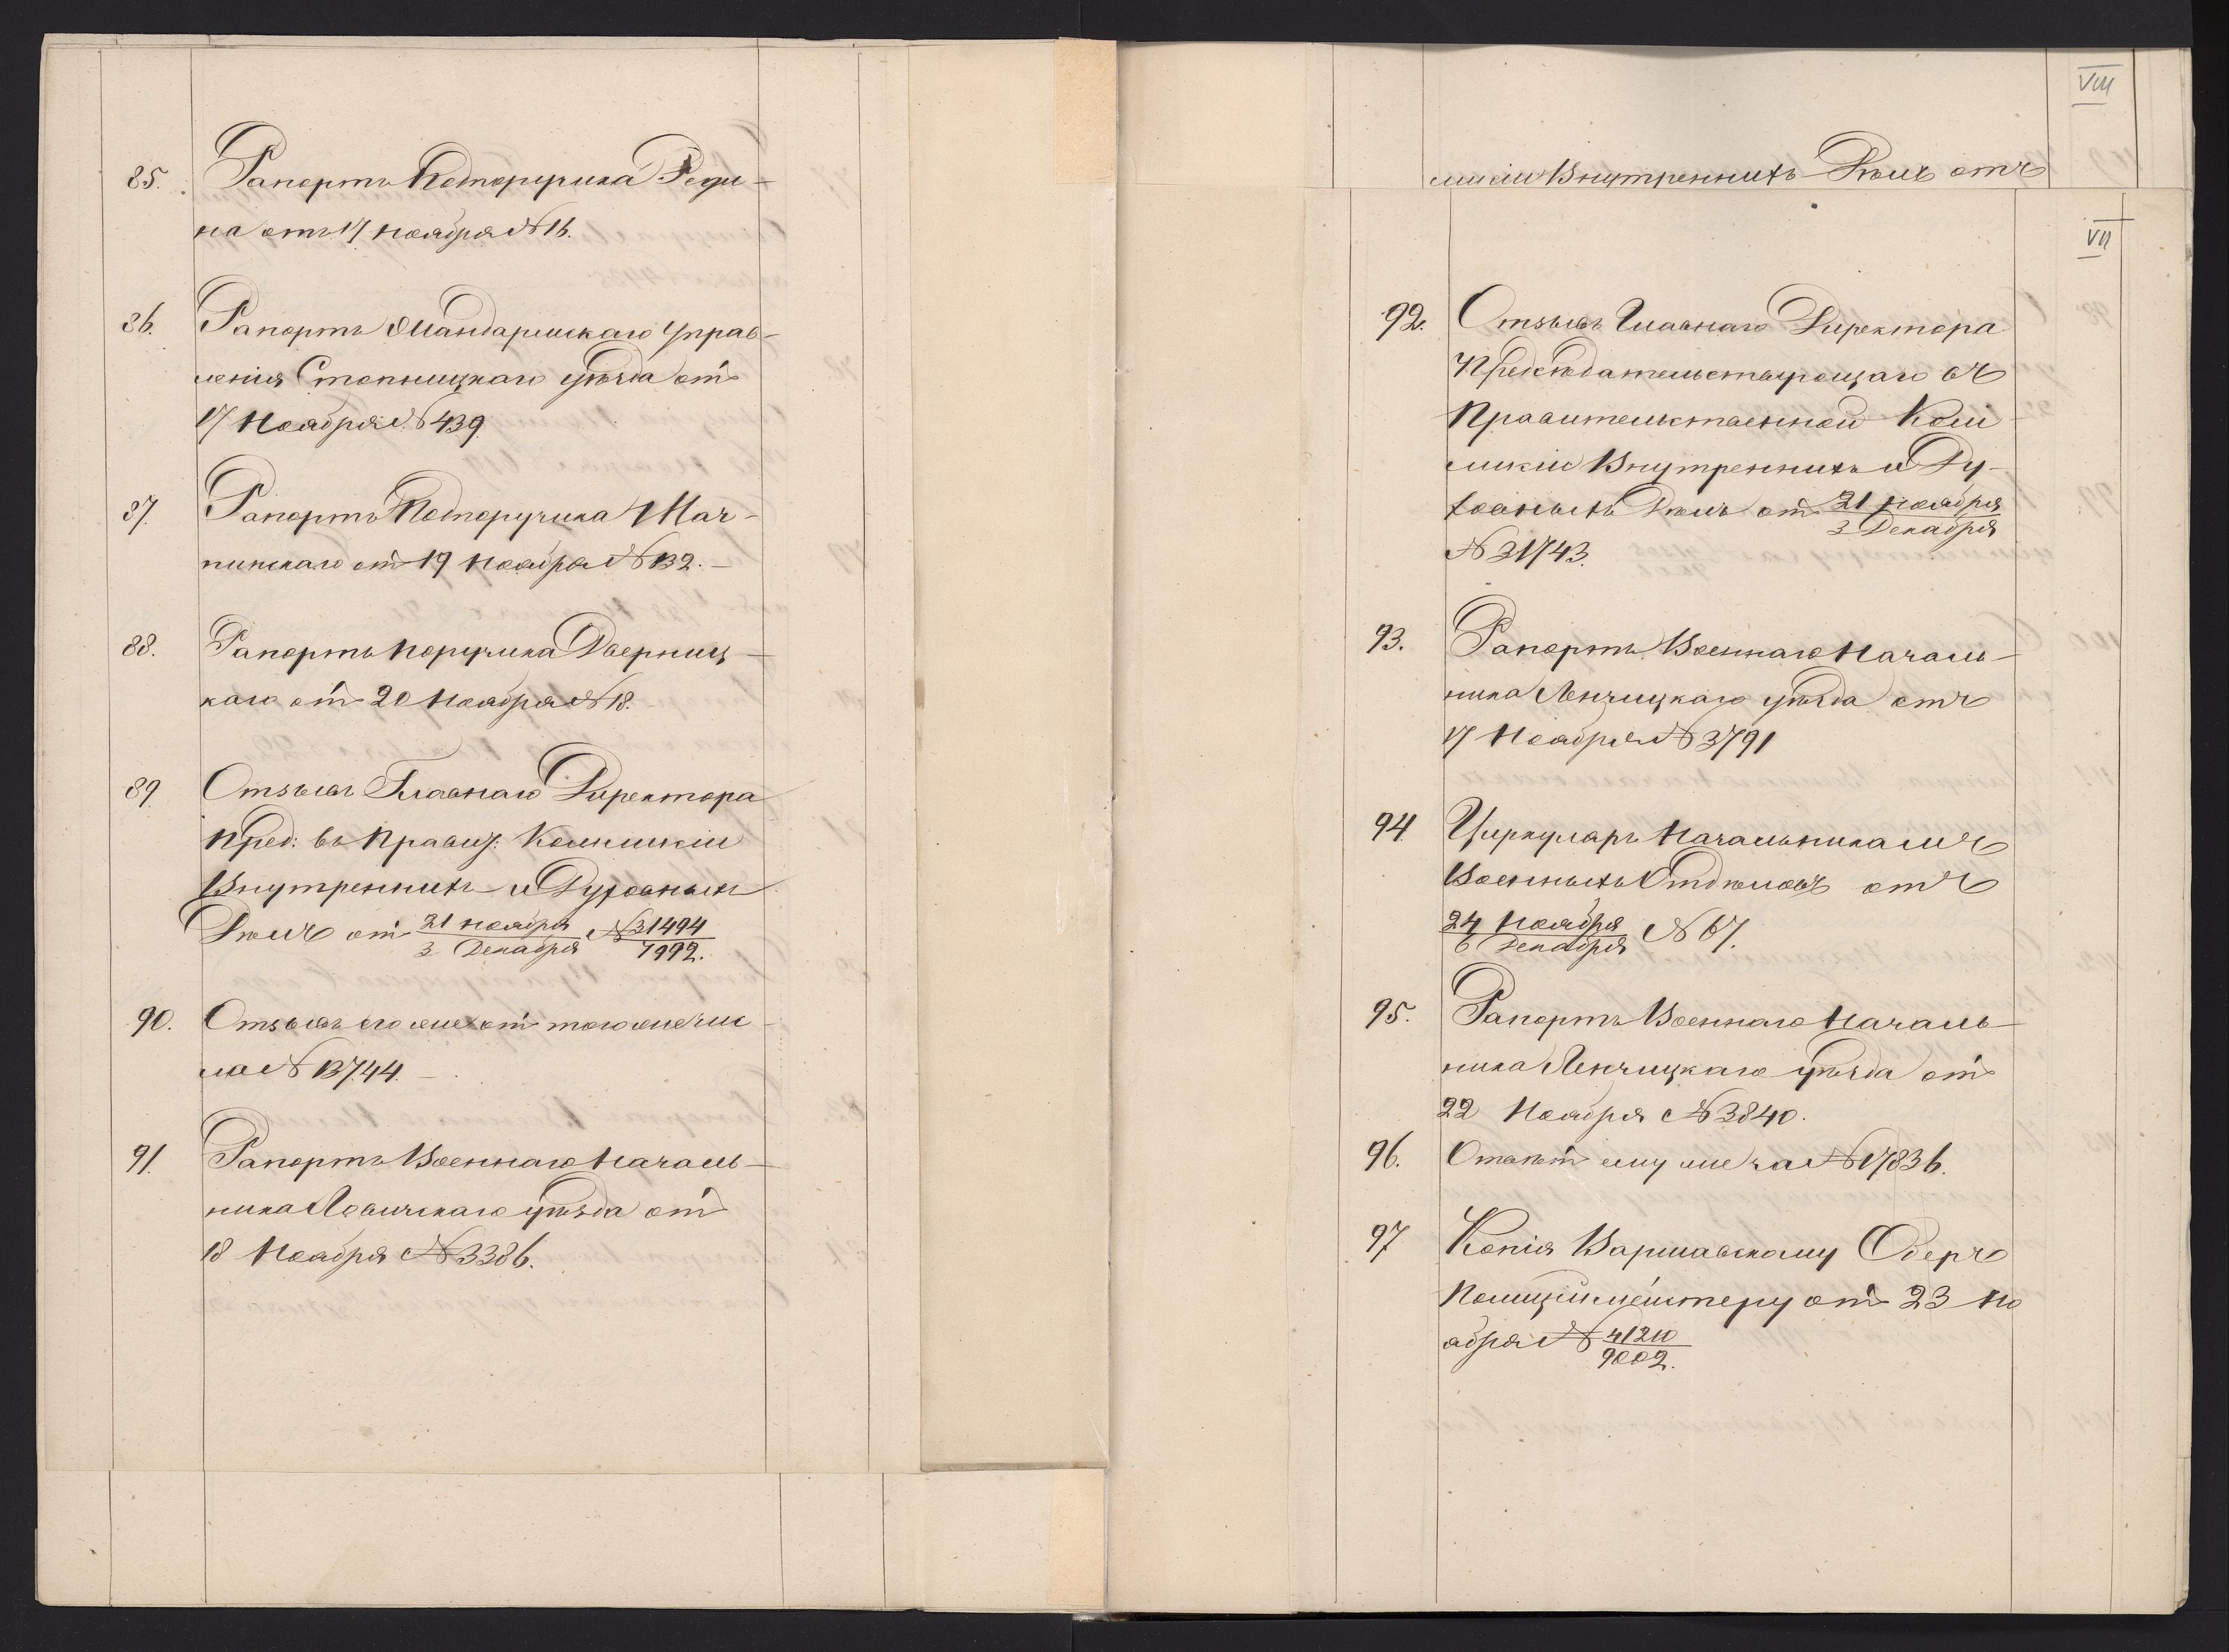 85. Рапортъ Подпоручика Реди-
на отъ 17 Ноября № 16.
86. Рапортъ Жандармскаго Управ-
ленія Стопницкаго уѣзда отъ
17 Ноября № 439
87. Рапортъ Подпоручика
отъ 19 Ноября № 132.-
88. Рапортъ Поручика Дверниц-
каго отъ 20 Ноября № 18.
89 Отзывъ Главнаго Директора
Пред: въ Правит: Коммисіи
Внутреннихъ и Духовныхъ
Дѣлъ отъ 21 Ноября / 3 Декабря № 31494 / 7992.
90. Отзывъ его же отъ того же чис-
ла № 13744.-
91. Рапортъ Военнаго Началь-
ника Ловичскаго уѣзда отъ
18 Ноября № 3386.
VIII
мисіи Внутреннихъ Дѣлъ отъ
VII
92. Отзывъ Главнаго Директора
Предсѣдательствующаго въ
Правительственной Ком-
мисіи Внутреннихъ и Ду-
ховныхъ Дѣлъ отъ 21 Ноября / 3 Декабря
№ 31743.
93. Рапортъ Военнаго Началь-
ника Ленчицкаго уѣзда отъ
17 Ноября № 3791
94 Циркуляръ Начальникамъ
Военныхъ Отдѣловъ отъ
24 Ноября / 6 Декабря № 67.
95. Рапортъ Военнаго Началь-
ника Ленчицкаго уѣзда отъ
22 Ноября № 3840.
96. Отвѣтъ ему же за № 17836.
97 Копія Варшавскому Оберъ
Полиціймейстеру отъ 23 Но
ября № 41210 / 9002.